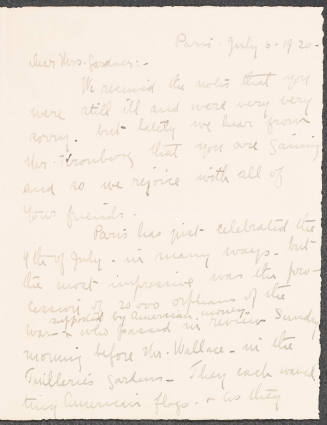 Paris - July 6 - 1920 -
Dear Mrs. Gardner: -
We received the notes that you
were still ill and were very very
sorry. But lately we hear from
Mrs. Kronberg that you are gaining
and so we rejoice with all of
your friends.
Paris has just celebrated the
4th of July - in many ways - but
the most impressive was the pro-
cession of 20,000 orphans of the
supported by American money
war - who passed in review Sunday
morning before Mr. Wallace - in the
Tuilleries Gardens - They each waved
tiny American flags - & as they